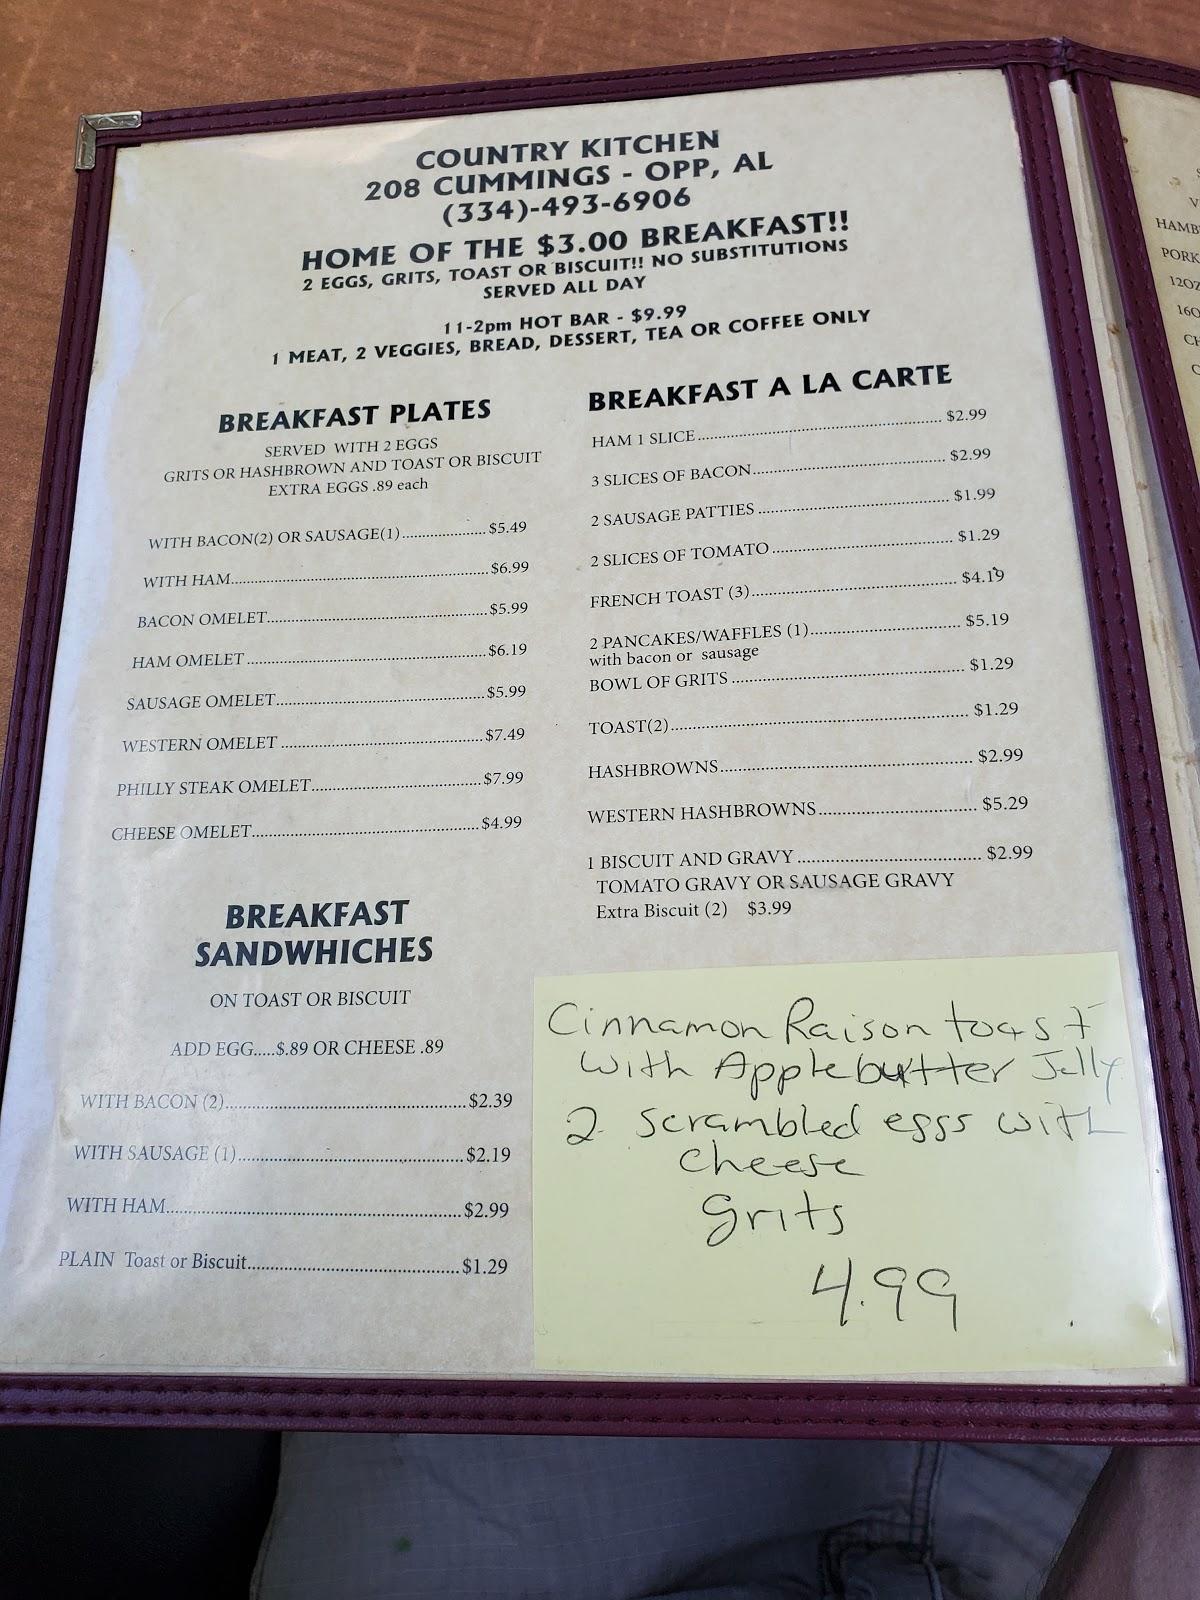 COUNTRY KITCHEN
208 CUMMINGS - OPP, AL
(334)-493-6906
HOME OF THE $3.00 BREAKFAST!!
2 EGGS, GRITS, TOAST OR BISCUIT!! NO SUBSTITUTIONS
SERVED ALL DAY
11-2pm HOT BAR - $9.99
1 MEAT, 2 VEGGIES, BREAD, DESSERT, TEA OR COFFEE ONLY
BREAKFAST PLATES
SERVED WITH 2 EGGS
GRITS OR HASHBROWN AND TOAST OR BISCUIT
EXTRA EGGS .89 each
WITH BACON(2) OR SAUSAGE(1)....................$5.49
WITH HAM....................$6.99
BACON OMELET....................$5.99
HAM OMELET....................$6.19
SAUSAGE OMELET....................$5.99
WESTERN OMELET....................$7.49
PHILLY STEAK OMELET....................$7.99
CHEESE OMELET....................$4.99
BREAKFAST
SANDWHICHES
ON TOAST OR BISCUIT
ADD EGG.....$.89 OR CHEESE .89
WITH BACON (2)....................$2.39
WITH SAUSAGE (1)....................$2.19
WITH HAM....................$2.99
PLAIN Toast or Biscuit....................$1.29
BREAKFAST A LA CARTE
HAM 1 SLICE....................$2.99
3 SLICES OF BACON....................$2.99
2 SAUSAGE PATTIES....................$1.99
2 SLICES OF TOMATO....................$1.29
FRENCH TOAST (3)....................$4.19
2 PANCAKES/WAFFLES (1)....................$5.19
with bacon or sausage
BOWL OF GRITS....................$1.29
TOAST(2)....................$1.29
HASHBROWNS....................$2.99
WESTERN HASHBROWNS....................$5.29
1 BISCUIT AND GRAVY....................$2.99
TOMATO GRAVY OR SAUSAGE GRAVY
Extra Biscuit (2) $3.99
Cinnamon Raison toast
with Applebutter Jelly
2 scrambled eggs with
cheese
grits
4.99
HAMB
PORK
12OZ